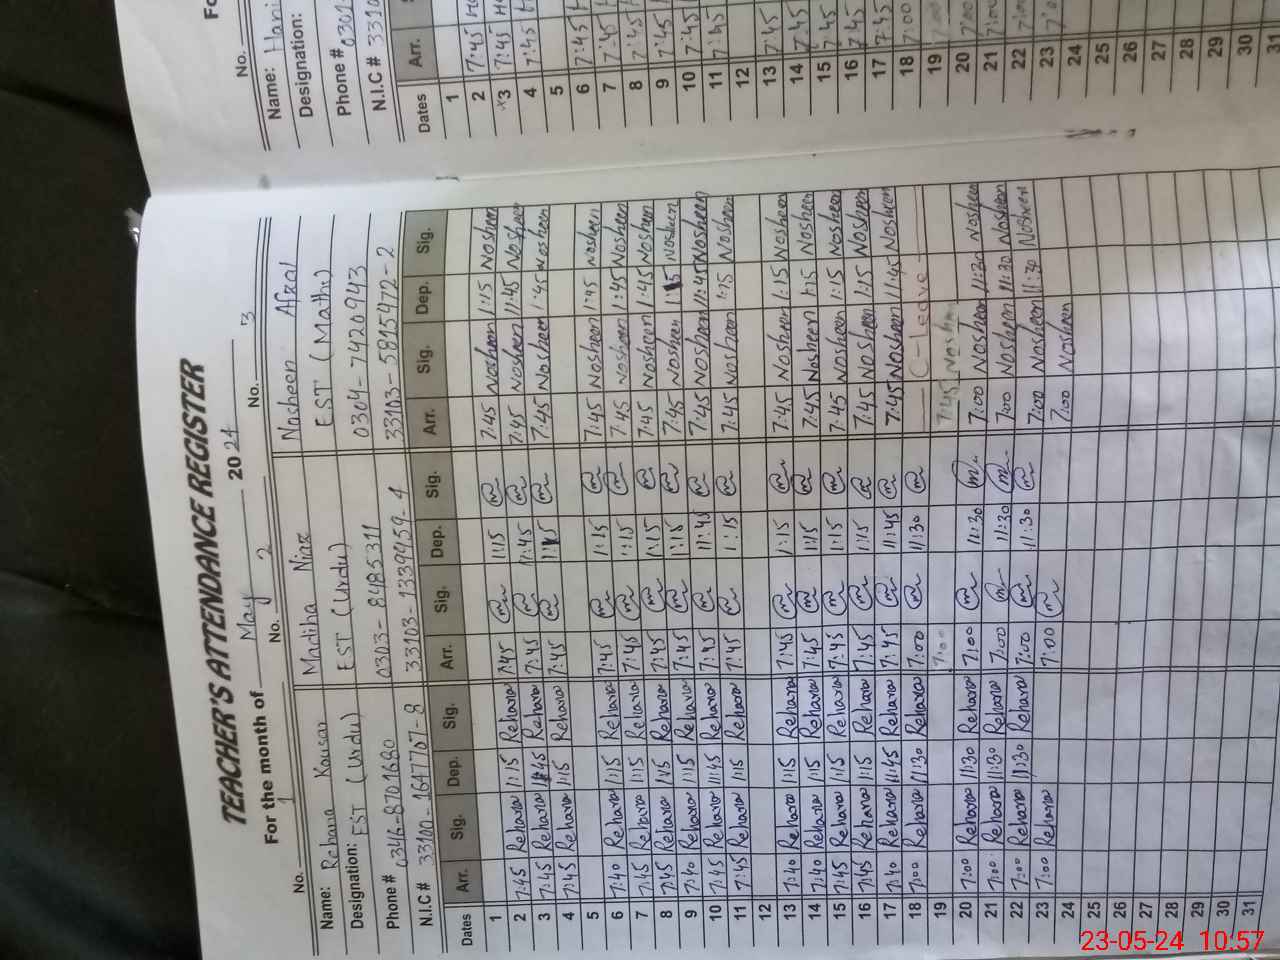 TEACHER'S ATTENDANCE REGISTER
For the month of May 2024
No. 1 No. 2 No. 3
Name: Rehana Kousar Madiha Niaz Nosheen Afzal
Designation: EST (Urdu) EST (Urdu) EST (Maths)
Phone # 0346-8701680 0303-8485311 0304-7420943
N.I.C # 33100-1647707-8 33103-1339459-4 33103-5815472-2
Dates Arr. Sig. Dep. Sig. Arr. Sig. Dep. Sig. Arr. Sig. Dep. Sig.
1
2 7:45 Rehana 1:15 Rehana 7:45 1:15 7:45 Nosheen 1:15 Nosheen
3 7:45 Rehana 11:45 Rehana 7:45 11:45 7:45 Nosheen 11:45 Nosheen
4 7:45 Rehana 1:15 Rehana 7:45 1:15 7:45 Nosheen 1:45 Nosheen
5
6 7:40 Rehana 1:15 Rehana 7:45 1:15 7:45 Nosheen 1:45 Nosheen
7 7:45 Rehana 1:15 Rehana 7:45 1:15 7:45 Nosheen 1:45 Nosheen
8 7:45 Rehana 1:15 Rehana 7:45 1:15 7:45 Nosheen 1:45 Nosheen
9 7:40 Rehana 1:15 Rehana 7:45 1:15 7:45 Nosheen 1:15 Nosheen
10 7:45 Rehana 11:45 Rehana 7:45 11:45 7:45 Nosheen 11:45 Nosheen
11 7:45 Rehana 1:15 Rehana 7:45 1:15 7:45 Nosheen 1:15 Nosheen
12
13 7:40 Rehana 1:15 Rehana 7:45 1:15 7:45 Nosheen 1:15 Nosheen
14 7:40 Rehana 1:15 Rehana 7:45 1:15 7:45 Nosheen 1:15 Nosheen
15 7:45 Rehana 1:15 Rehana 7:45 1:15 7:45 Nosheen 1:15 Nosheen
16 7:45 Rehana 1:15 Rehana 7:45 1:15 7:45 Nosheen 1:15 Nosheen
17 7:40 Rehana 11:45 Rehana 7:45 11:45 7:45 Nosheen 11:45 Nosheen
18 7:00 Rehana 11:30 Rehana 7:00 11:30 C-Leave
19 7:00 7:45 Nosheen
20 7:00 Rehana 11:30 Rehana 7:00 11:30 7:00 Nosheen 11:30 Nosheen
21 7:00 Rehana 11:30 Rehana 7:00 11:30 7:00 Nosheen 11:30 Nosheen
22 7:00 Rehana 11:30 Rehana 7:00 11:30 7:00 Nosheen 11:30 Nosheen
23 7:00 Rehana 7:00 7:00 Nosheen
24
25
26
27
28
29
30
31
No.
Name: Hani
Designation:
Phone # 0301
N.I.C # 3310
Dates Arr.
1
2 7:45
3 7:45
4 7:45
5
6 7:45
7 7:45
8 7:45
9 7:45
10 7:45
11 7:45
12
13 7:45
14 7:45
15 7:45
16 7:45
17 7:45
18 7:00
19 7:00
20 7:00
21 7:00
22 7:00
23 7:0
24
25
26
27
28
29
30
31
23-05-24 10:57